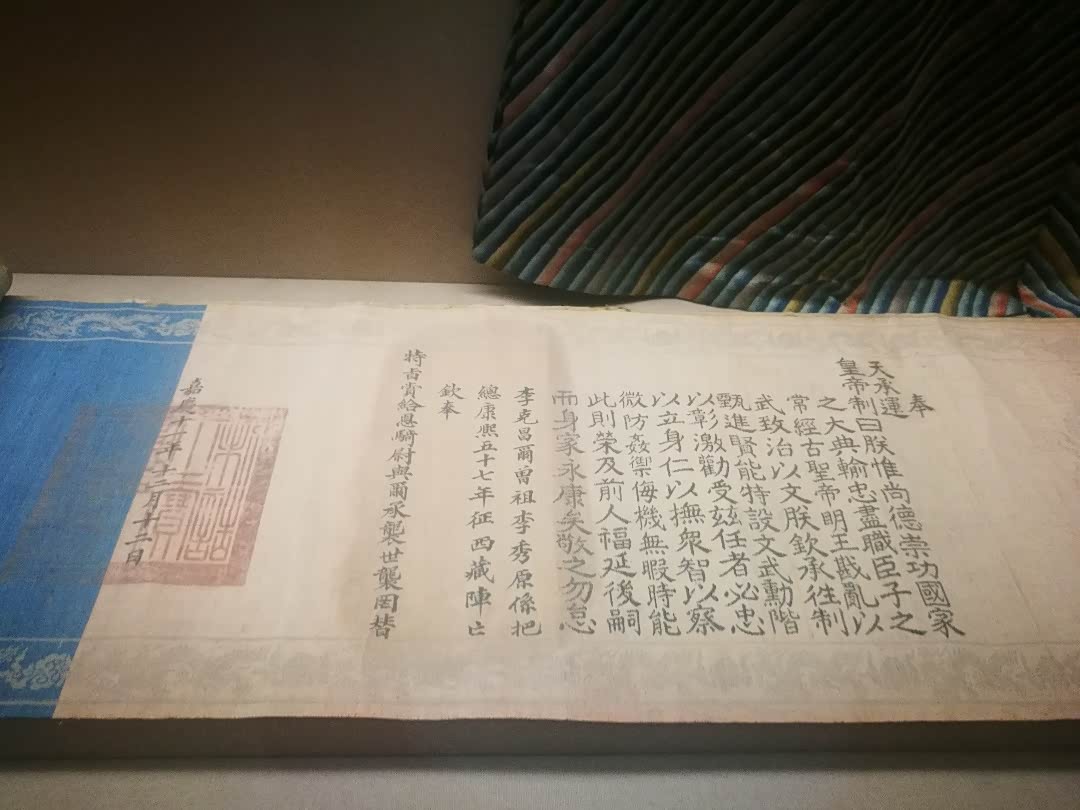 奉
天承運
皇帝制曰朕惟尚德崇功國家
之大典輸忠盡職臣子之
常經古聖帝明王戡亂以
武致治以文朕欽承往制
甄進賢能特設文武勳階
以彰激勸受玆任者必忠
以立身仁以撫衆智以察
微防姦禦侮機無暇時能
此則榮及前人福延後嗣
而身家永康矣敬之勿怠
李克昌爾曾祖李秀原係把
總康熙五十七年征西藏陣亡
欽奉
特旨賞給恩騎尉與爾承襲世襲罔替
嘉慶十一年十二月十二日